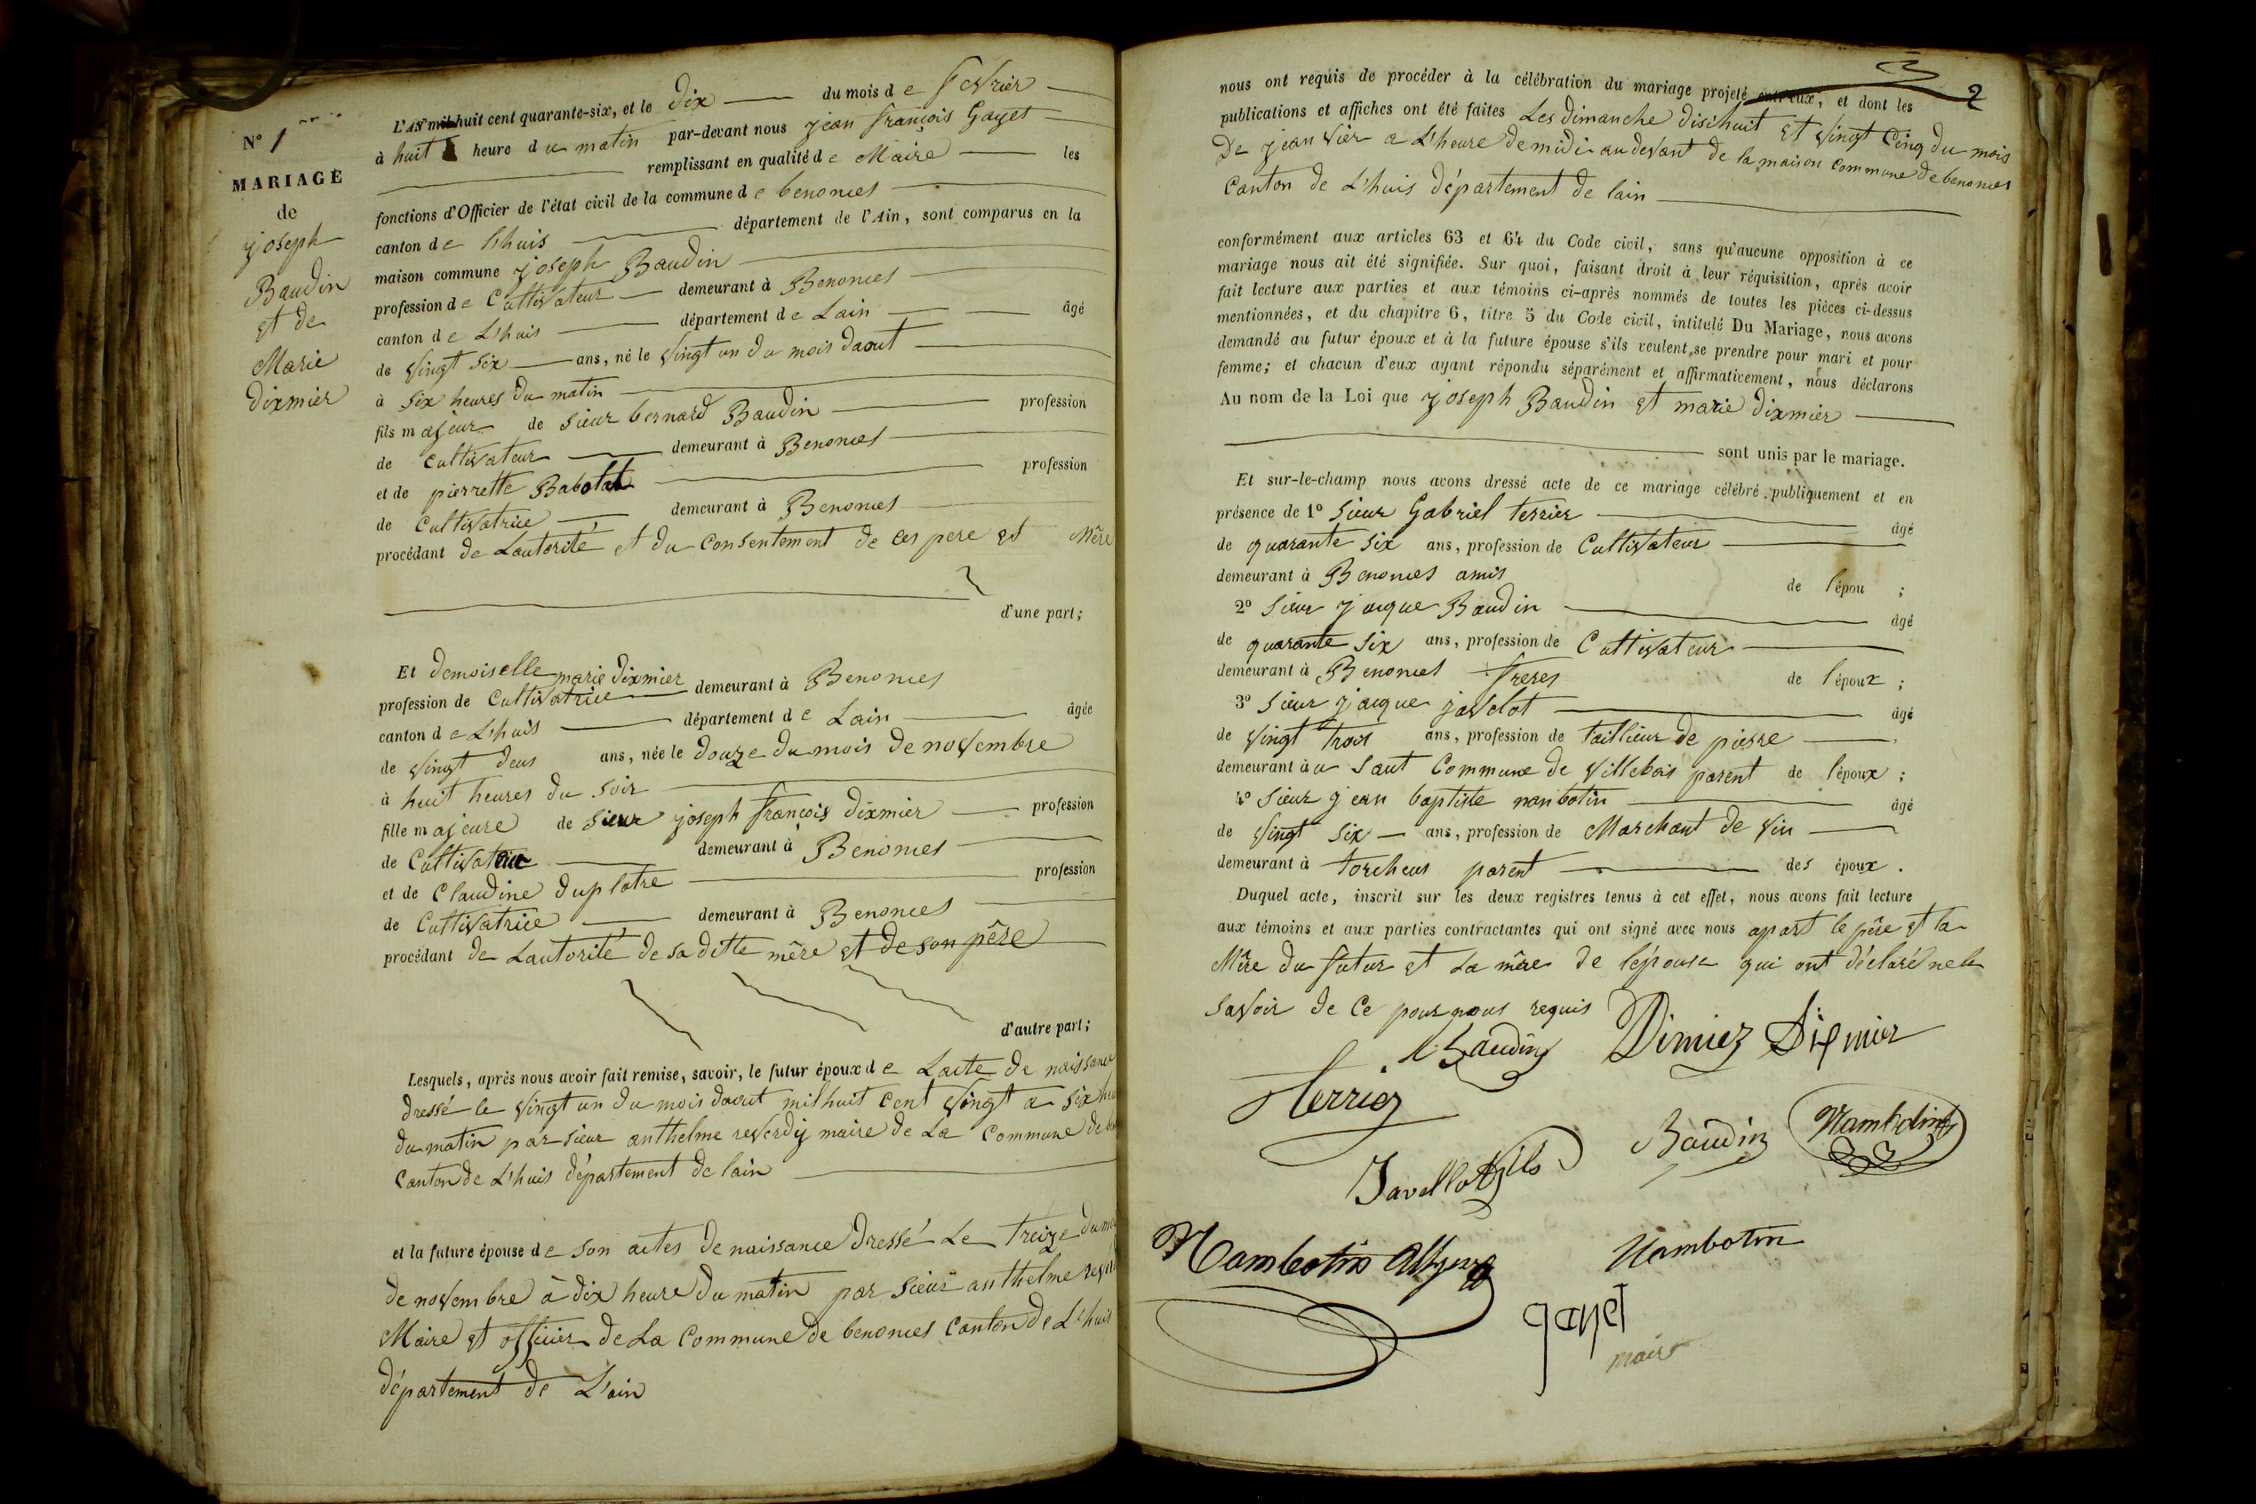 N° 1er
MARIAGE
de
joseph
Baudin
et de
Marie
dixmier
L'AN mil huit cent quarante-six, et le dix du mois de fevrier
à huit heure du matin par-devant nous jean françois Gayet
remplissant en qualité de Maire les
fonctions d'Officier de l'état civil de la commune de benonces
canton de lhuis département de l'Ain, sont comparus en la
maison commune joseph Baudin
profession de Cultivateur demeurant à Benonces
canton de L'huis département de Lain âgé
de vingt six ans, né le vingt un du mois daout
à six heures du matin
fils majeur de sieur bernard Baudin profession
de cultivateur demeurant à Benonces
et de pierrette Babolat profession
de Cultivatrice demeurant à Benonces
procédant de Lautorité et du consentement de ces pere et Mère
d'une part;
Et demoiselle marie dixmier
profession de Cultivatrice demeurant à Benonces
canton de L'huis département de Lain âgée
de vingt deus ans, née le douze du mois de novembre
à huit heures du soir
fille majeure de sieur joseph françois dixmier profession
de Cultivat demeurant à Benonces
et de Claudine duplatre profession
de Cultivatrice demeurant à Benonces
procédant de Lautorité de sa ditte mêre et de son pêre
d'autre part;
Lesquels, après nous avoir fait remise, savoir, le futur époux de Lacte de naissance
dressé le vingt un du mois daout mil huit cent vingt a six
du matin par sieur anthelme reverdy maire de La Commune de
Canton de L'huis département de lain
et la future épouse de son actes de naissance dressé Le treize du
de novembre à dix heure du matin par sieur anthelme
Maire et officier de La Commune de benonces Canton de L'huis
département de L'ain
2
nous ont requis de procéder à la célébration du mariage projeté entre eux, et dont les
publications et affiches ont été faites Les dimanche dixhuit et vingt Cinq du mois
De jeanvier a L'heure de midi au devant de la maison Commune de benonces
Canton de L'huis département de lain
conformément aux articles 63 et 64 du Code civil, sans qu'aucune opposition à ce
mariage nous ait été signifiée. Sur quoi, faisant droit à leur réquisition, après avoir
fait lecture aux parties et aux témoins ci-après nommés de toutes les pièces ci-dessus
mentionnées, et du chapitre 6, titre 5 du Code civil, intitulé Du Mariage, nous avons
demandé au futur époux et à la future épouse s'ils veulent se prendre pour mari et pour
femme; et chacun d'eux ayant répondu séparément et affirmativement, nous déclarons
Au nom de la Loi que joseph Baudin et marie dixmier
sont unis par le mariage.
Et sur-le-champ nous avons dressé acte de ce mariage célébré publiquement et en
présence de 1° sieur Gabriel terrier âgé
de quarante six ans, profession de Cultivateur
demeurant à Benonces amis de l'épou ;
2° sieur jacque Baudin âgé
de quarante six ans, profession de Cultivateur
demeurant à Benonces freres de l'époux ;
3° sieur jacque javelot âgé
de vingt trois ans, profession de tailleur de pierre
demeurant à u saut Commune de villebois parent de l'époux ;
4° sieur jean baptiste nanbotin âgé
de vingt six ans, profession de Marchant de vin
demeurant à torcheus parent des époux.
Duquel acte, inscrit sur les deux registres tenus à cet effet, nous avons fait lecture
aux témoins et aux parties contractantes qui ont signé avec nous apart le pêre et la
Mêre du futur et La mêre de l'épouse qui ont déclaré ne le
savoir de Ce pour nous requis
Baudin Dimiez Dixmier
Terrier
Javellot fils Baudin Nambotin
Nambotin Nambotin
gayet
maire